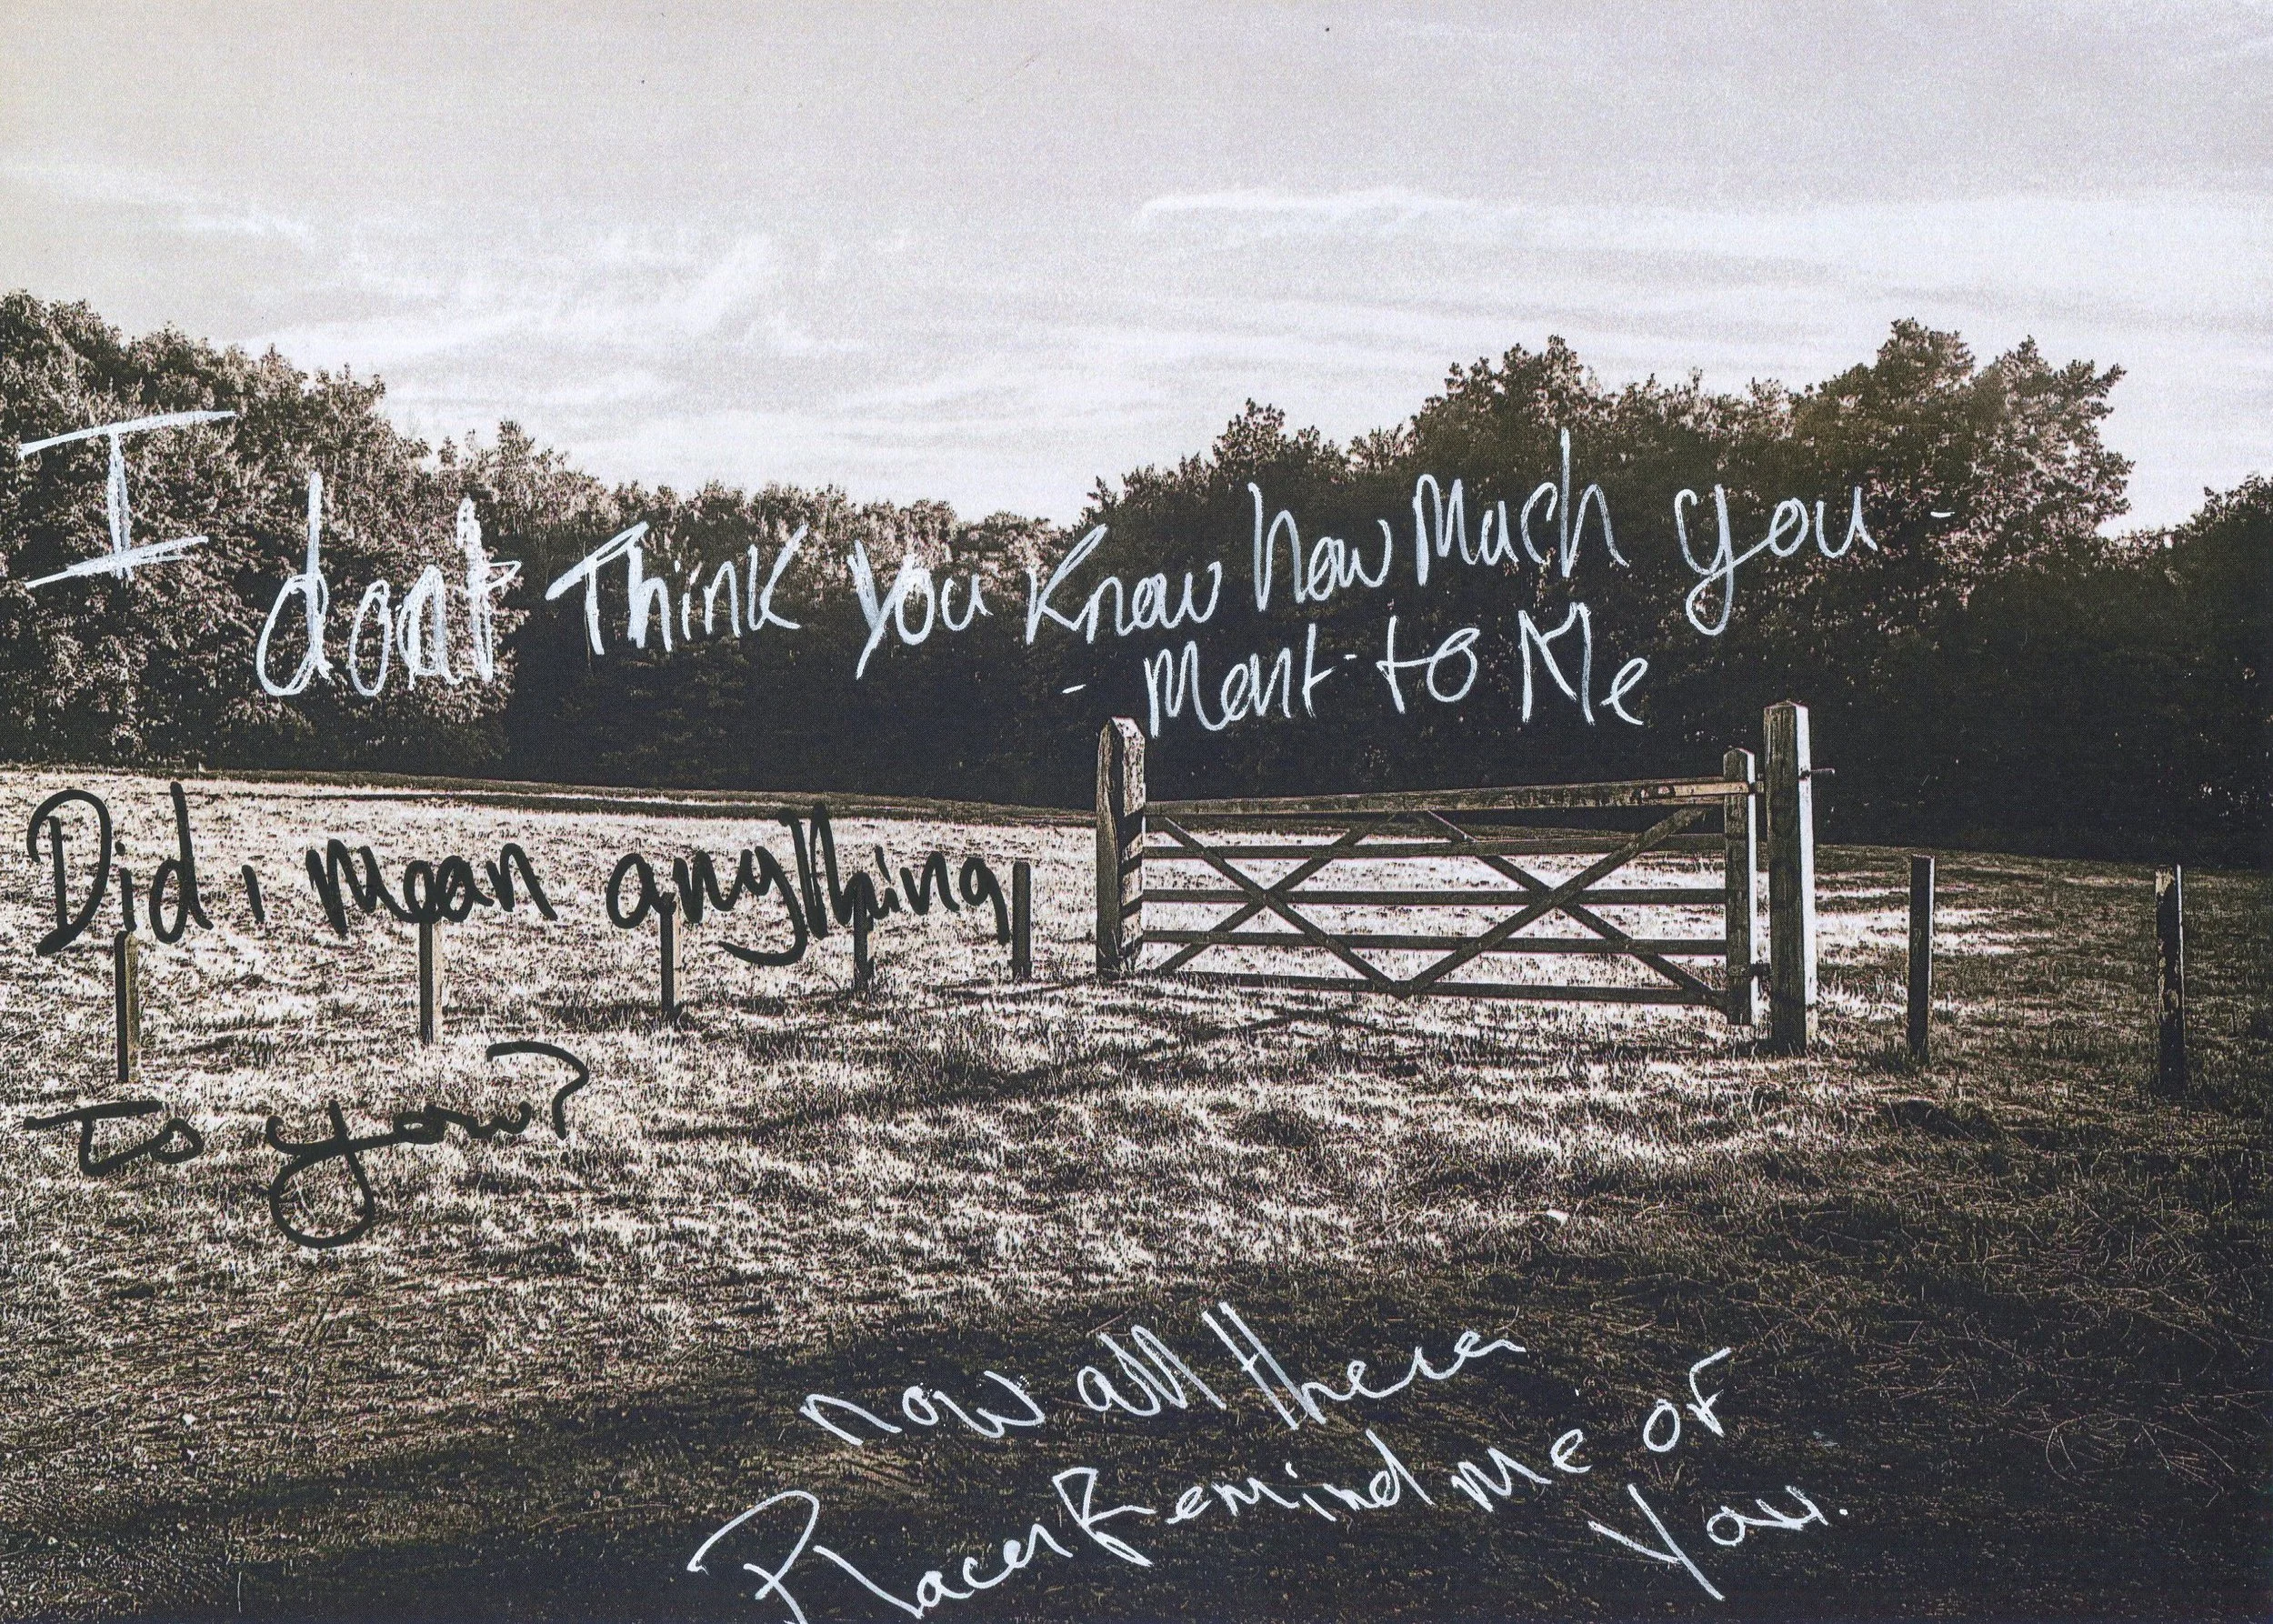 I dont Think you Know how Much you -
- Ment to Me
Did i mean anything
to you?
now all these
Places Remind me of
You.